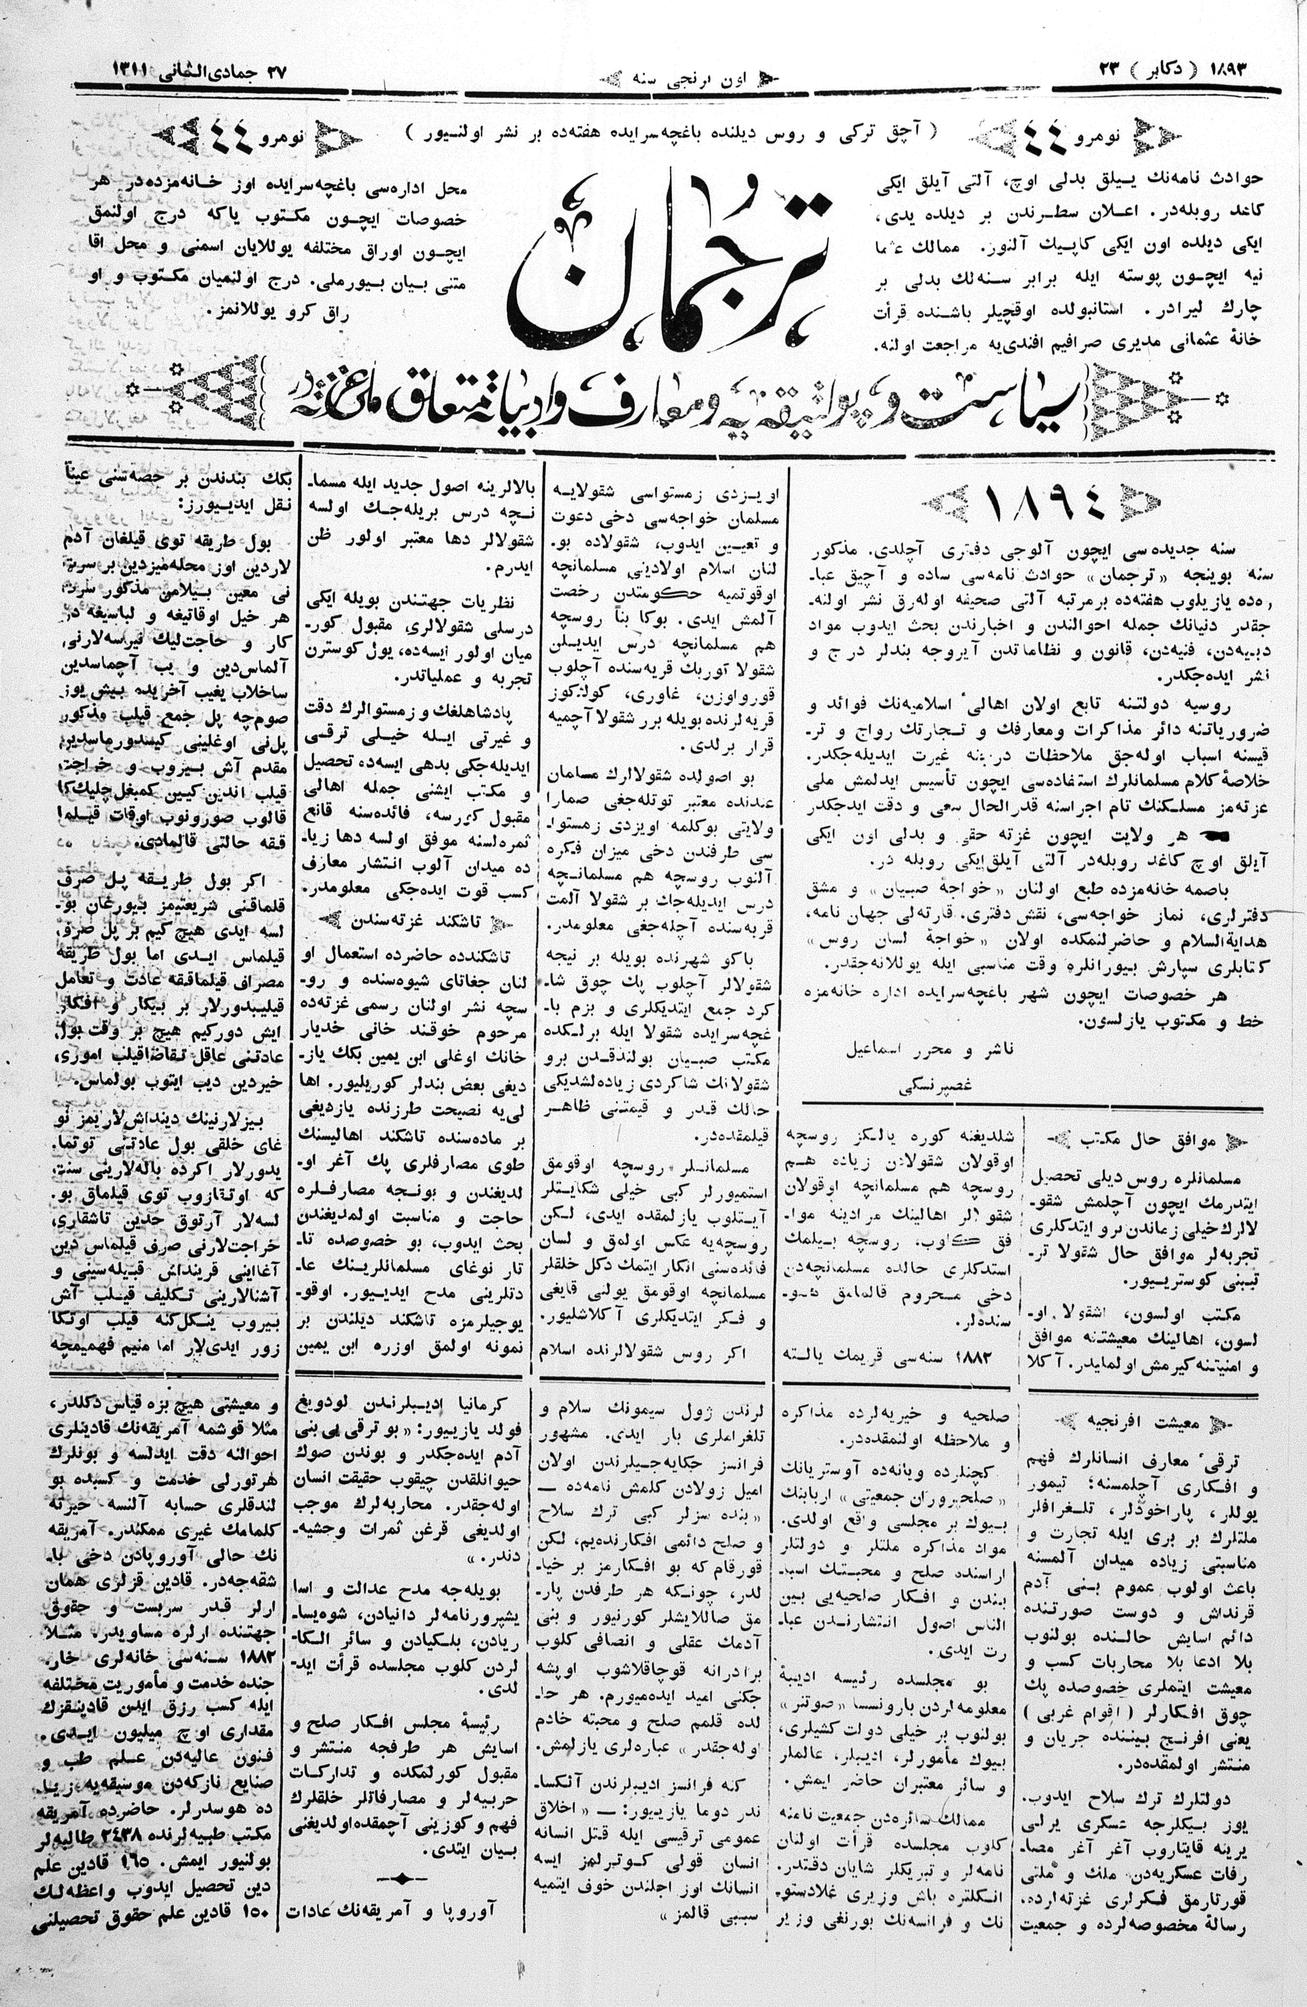 ١٨٩٣ ( دكابر ) ٢٣
اون برنجی سنه
٢٧ جمادی الثانی ١٣١١
نومرو ٤٤
( آچق تركی و روس دیلنده باغچه سرایده هفته‌ده بر نشر اولنیور )
نومرو ٤٤
حوادث نامه‌نك ییلق بدلی اوچ، آلتی آیلق ایكی
كاغد روبله‌در. اعلان سطرندن بر دیلده یدی،
ایكی دیلده اون ایكی كاپیك آلنور. ممالك عثما
نیه ایچون پوسته ایله برابر سنه‌لك بدلی بر
چارك لیرادر. استانبولده اوقچیلر باشنده قرأت
خانهٔ عثمانی مدیری صرافیم افندی‌یه مراجعت اولنه.
ترجمان
محل اداره‌سی باغچه سرایده اوز خانه‌مزده‌در هر
خصوصات ایچون مكتوب یاكه درج اولنمق
ایچون اوراق مختلفه یوللایان اسمنی و محل اقا
متنی بیان بیورملی. درج اولنمیان مكتوب و او
راق كرو یوللانمز.
سیاست و پولتیقه‌یه و معارف و ادبیاته متعلق ملی غزته‌در
١٨٩٤
سنه جدیده‌سی ایچون آلوجی دفتری آچلدی. مذكور
سنه بوینجه «ترجمان» حوادث نامه‌سی ساده و آچیق عبا-
ره‌ده یازیلوب هفته‌ده بر مرتبه آلتی صحیفه اوله‌رق نشر اولنه-
جقدر. دنیانك جمله احوالندن و اخبارندن بحث ایدوب مواد
دبیه‌دن، فنیه‌دن، قانون و نظاماتدن آیروجه بندلر درج و
نشر ایده‌جكدر.
روسیه دولتنه تابع اولان اهالیٔ اسلامیه‌نك فوائد و
ضروریاتنه دائر مذاكرات ومعارفك و تجارتك رواج و تر-
قیسنه اسباب اوله‌جق ملاحظات درینه غیرت ایدیله‌جكدر.
خلاصهٔ كلام مسلمانلرك استفاده‌سی ایچون تأسیس ایدلمش ملی
غزته‌مز مسلكنك تام اجراسنه قدرالحال سعی و دقت ایدجكدر
هر ولایت ایچون غزته حقی و بدلی اون ایكی
آیلق اوچ كاغد روبله‌در آلتی آیلق ایكی روبله در.
باصمه خانه‌مزده طبع اولنان «خواجهٔ صبیان» و مشق
دفترلری، نماز خواجه‌سی، نقش دفتری. قارته‌لی جهان نامه،
هدایةالسلام و حاضرلنمكده اولان «خواجهٔ لسان روس»
كتابلری سپارش بیورانلره وقت مناسبی ایله یوللانه‌جقدر.
هر خصوصات ایچون شهر باغچه سرایده اداره خانه‌مزه
خط و مكتوب یازلسون.
ناشر و محرر اسماعیل
غصپرنسكی
موافق حال مكتب
مسلمانلره روس دیلی تحصیل
ایتدرمك ایچون آچلمش شقو-
لالرك خیلی زماندن برو ایتدكلری
تجربه‌لر موافق حال شقولا تر-
تیبنی كوسترییور.
مكتب اولسون، اشقولا او-
لسون، اهالینك معیشتنه موافق
و امنیتنه كیرمش اولمایدر. آكلا
شلدیغنه كوره یالكز روسچه
اوقولان شقولادن زیاده هم
روسچه هم مسلمانچه اوقولان
شقولالر اهالینك مرادینه موا-
فق كلوب، روسچه بیلمك
استدكلری حالده مسلمانچه‌دن
دخی محروم قالمامق هو-
سنده‌لر.
١٨٨٢ سنه‌سی قریمك یالته
اویزدی زمستواسی شقولایه
مسلمان خواجه‌سی دخی دعوت
و تعیین ایدوب، شقولاده بو-
لنان اسلام اولادینی مسلمانچه
اوقوتمیه حكومتدن رخصت
آلمش ایدی. بوكا بناً روسچه
هم مسلمانچه درس ایدیلن
شقولا آوربك قریه‌سنده آچلوب
قورواوزن، غاوری، كولكوز
قریه‌لرنده بویله برر شقولا آچمیه
قرار برلدی.
بو اصولده شقولالرك مسلمان
عندنده معتبر توتله‌جغی صمارا
ولایتی بوكلمه اویزدی زمستوا-
سی طرفندن دخی میزان فكره
آلنوب روسچه هم مسلمانچه
درس ایدیله‌جك بر شقولا آلمت
قریه‌سنده آچله‌جغی معلومدر.
باكو شهرنده بویله بر نیچه
شقولالر آچلوب پك چوق شا-
كرد جمع ایتدیكلری و بزم با-
غچه سرایده شقولا ایله برلكده
مكتب صبیان بولندقدن برو
شقولانك شاكردی زیاده‌لشدیكی
حالك قدر و قیمتنی ظاهر
قیلمقده‌در.
مسلمانلر روسچه اوقومق
استمیورلر كبی خیلی شكایتلر
آیتلوب یازلمقده ایدی، لكن
روسچه‌یه عكس اولمق و لسان
فائده‌سنی انكار ایتمك دكل خلقلر
مسلمانچه اوقومق یولنی قایغی
و فكر ایتدیكلری آكلاشلیور.
اكر روس شقولالرنده اسلام
بالالرینه اصول جدید ایله مسما-
نچه درس بریله‌جك اولسه
شقولالر دها معتبر اولور ظن
ایدرم.
نظریات جهتندن بویله ایكی
درسلی شقولالری مقبول كور-
میان اولور ایسه‌ده، یول كوسترن
تجربه و عملیاتدر.
پادشاهلغك و زمستوالرك دقت
و غیرتی ایله خیلی ترقی
ایدیله‌جكی بدهی ایسه‌ده تحصیل
و مكتب ایشنی جمله اهالی
مقبول كوررسه، فائده‌سنه قانع
ثمره‌لسنه موفق اولسه دها زیا-
ده میدان آلوب انتشار معارف
كسب قوت ایده‌جكی معلومدر.
تاشكند غزته‌سندن
تاشكندده حاضرده استعمال او
لنان جغاتای شیوه‌سنده و رو-
سچه نشر اولنان رسمی غزته‌ده
مرحوم خوقند خانی خدیار
خانك اوغلی ابن یمین بكك یاز-
دیغی بعض بندلر كوریلیور. اها
لی‌یه نصیحت طرزنده یازدیغی
بر ماده‌سنده تاشكند اهالیسنك
طوی مصارفلری پك آغر او-
لدیغندن و بونجه مصارفلره
حاجت و مناسبت اولمدیغندن
بحث ایدوب، بو خصوصده تا-
تار نوغای مسلمانلرینك عا-
دتلرینی مدح ایدییور. اوقو-
یوجیلرمزه تاشكند دیلندن بر
نمونه اولمق اوزره ابن یمین
بكك بندندن بر حصه‌سنی عیناً
نقل ایدییورز:
بول طریقه توی قیلغان آدم
لاردین اوز محله‌میزدین بر سرت
نی معین بیلامن مذكور سرت
هر خیل اوقاتیغه و لباسیغه در
كار و حاجتلیك نیرسه‌لارنی
آلماس‌دین و یب آچماسدین
ساخلاب یغیب آخریده بیش یوز
صوم‌چه پل جمع قیلب مذكور
پل‌نی اوغلینی كیسدورماسدین
مقدم آش بیروب و خراجت
قیلب اندین كیین كمبغل‌چلیك‌كا
قالوب صورونوب اوقات قیلما
قیقه حالتی قالمادی.
اكر بول طریقه پل صرف
قلماقنی شریعتیمز بیورغان بو-
لسه ایدی هیچ كیم بر پل صرف
قیلماس ایدی اما بول طریقه
مصراف قیلماقیقه عادت و تعامل
قیلیبدورلار بر بیكار و افكار
ایش دوركیم هیچ بر وقت بول
عادتنی عاقل تقاضا قیلب اموری
خیردین دیب ایتوب بولماس.
بیزلارنینك دینداش‌لاریمز نو
غای خلقی بول عادتنی توتما-
یدورلار اكرده باله‌لارینی سنت
كه اوتقازوب توی قیلماق بو-
لسه‌لار آرتوق حدین تاشقاری
خراجت‌لارنی صرف قیلماس دین
آغااینی قرینداش قبیله‌سینی و
آشنالارینی تكلیف قیلب آش
بیروب ینكل‌كنه قیلب اوتكا
زور ایدی‌لار اما منیم فهمیمچه
معیشت افرنجیه
ترقیٔ معارف انسانلرك فهم
و افكاری آچلمسنه؛ تیمور
یوللر، پاراخودلر، تلغرافلر
ملتلرك بر بری ایله تجارت و
مناسبتی زیاده میدان آلمسنه
باعث اولوب عموم بنی آدم
قرنداش و دوست صورتنده
دائم اسایش حالنده بولنوب
بلا ادعا بلا محاربات كسب و
معیشت ایتملری خصوصده پك
چوق افكارلر ( اقوام غربی )
یعنی افرنج بیننده جریان و
منتشر اولمقده‌در.
دولتلرك ترك سلاح ایدوب.
یوز بیكلرجه عسكری یرلی
یرینه قایتاروب آغر آغر مصا-
رفات عسكریه‌دن ملك و ملتی
قورتارمق فكرلری غزته‌لرده.
رسالهٔ مخصوصه‌لرده و جمعیت
صلحیه و خیریه‌لرده مذاكره
و ملاحظه اولنمقده‌در.
كچنلرده ویانه‌ده آوستریانك
«صلحپروران جمعیتی» اربابنك
بیوك بر مجلسی واقع اولدی.
مواد مذاكره ملتلر و دولتلر
اراسنده صلح و محبتك اسبا-
بندن و افكار صلحیه‌یی بین
الناس اصول انتشارندن عبا-
رت ایدی.
بو مجلسده رئیسه ادیبهٔ
معلومه‌لردن بارونسسا «صوتنر»
بولنوب بر خیلی دولت كشیلری،
بیوك مأمورلر، ادیبلر، عالملر
و سائر معتبران حاضر ایمش.
ممالك سائره‌دن جمعیت نامنه
كلوب مجلسده قرأت اولنان
نامه‌لر و تبریكلر شایان دقتدر.
انكلتره باش وزیری غلادستو-
نك و فرانسه‌نك بورنغی وزیر
لرندن ژول سیمونك سلام و
تلغراملری بار ایدی. مشهور
فرانسز حكایه‌جیلرندن اولان
امیل زولادن كلمش نامه‌ده —
«بنده سزلر كبی ترك سلاح
و صلح دائمی افكارنده‌یم، لكن
قورقام كه بو افكارمز بر خیا-
لدر، چونكه هر طرفدن پار-
مق صاللایشلر كورنیور و بنی
آدمك عقلی و انصافی كلوب
برادرانه قوچاقلاشوب اوپشه
جكنی امید ایده‌میورم. هر حا-
لده قلمم صلح و محبته خادم
اوله‌جقدر» عباره‌لری یازلمش.
كنه فرانسز ادیبلرندن آلكسا-
ندر دوما یازییور: — «اخلاق
عمومی ترقیسی ایله قتل انسانه
انسان قولی كوتیرلمز ایسه
انسانك اوز اجلندن خوف ایتمیه
سببی قالمز»
كرمانیا ادیبلرندن لودویغ
فولد یازییور: «بو ترقی یی بنی
آدم ایده‌جكدر و بوندن صوك
حیوانلقدن چیقوب حقیقت انسان
اوله‌جقدر. محاربه‌لرك موجب
اولدیغی قرغن ثمرات وحشیه-
دندر.»
بویله‌جه مدح عدالت و اسا
یشپرورنامه‌لر دانیادن، شوه‌یسا-
ریادن، بلكیادن و سائر الكا-
لردن كلوب مجلسده قرأت اید-
لدی.
رئیسهٔ مجلس افكار صلح و
اسایش هر طرفجه منتشر و
مقبول كورلمكده و تداركات
حربیه‌لر و مصارفاتلر خلقلرك
فهم و كوزینی آچمقده اولدیغنی
بیان ایتدی.
آوروپا و آمریقه‌نك عادات
و معیشتی هیچ بزه قیاس دكلدر،
مثلا قوشمه آمریقه‌نك قادینلری
احوالنه دقت ایدلسه و بونلرك
هرتورلی خدمت و كسبده بو
لندقلری حسابه آلنسه حیرته
كلمامك غیری ممكندر. آمریقه
نك حالی آوروپادن دخی با-
شقه‌جه‌در. قادین قزلری همان
ارلر قدر سربست و حقوق
جهتنده ارلره مساویدر. مثلا
١٨٨٢ سنه‌سی خانه‌لری خار-
جنده خدمت و مأموریت مختلفه
ایله كسب رزق ایدن قادینقزك
مقداری اوچ میلیون ایدی.
فنون عالیه‌دن علم طب و
صنایع نازكه‌دن موسیقه‌یه زیا-
ده هوسدرلر. حاضرده آمریقه
مكتب طبیه‌لرنده ٢٤٣٨ طالبه‌لر
بولنیور ایمش. ١٦٥ قادین علم
دین تحصیل ایدوب واعظه‌لك
١٥٠ قادین علم حقوق تحصیلنی